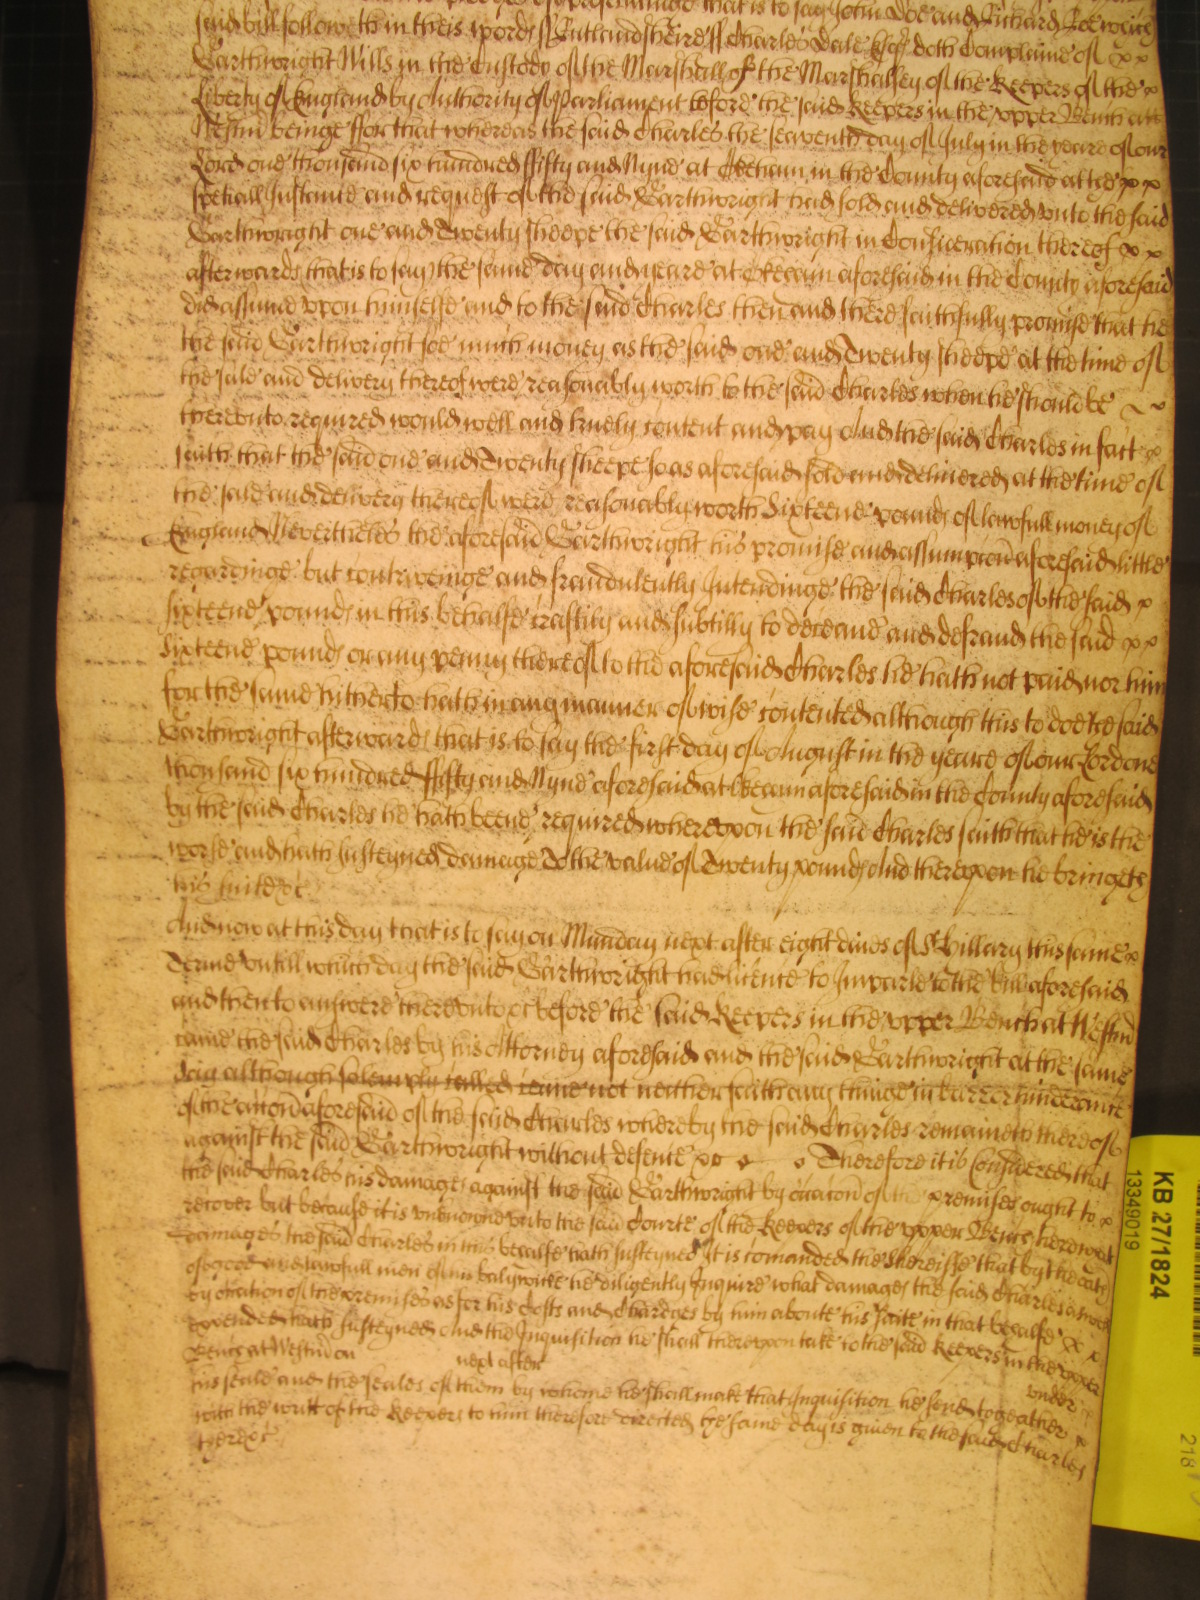 pledges of prosecution that is to say John Doe and Richard Roe which
said bill followeth in theis words ss Rutlandsheire ss Charles Dale Esqr doth Complaine of x x
Carthwright Nills in the Custody of the Marshall of the Marshallsey of the Keepers of the x
Liberty of England by Authority of Parliament before the said Keepers in the upper Bench att
Westmr beinge ffor that whereas the said Charles the seaventh day of July in the yeare of our
Lord one thousand six hundred ffifty and Nyne at Okeham in the County aforesaid at the x x
speciall Instance and request of the said Carthwright had sold and delivered unto the said
Carthwright one and Twenty sheepe the said Carthwright in Consideration thereof x x
afterwards that is to say the same day and yeare at Okeham aforesaid in the County aforesaid
did assume upon himselfe and to the said Charles then and there faithfully promise that he
the said Carthwright soe much money as the said one and Twenty sheepe at the time of
the sale and delivery thereof were reasonably worth to the said Charles when he should be
thereunto required would well and truely content and pay And the said Charles in fact x
saith that the said one and Twenty sheepe so as aforesaid sold and delivered at the time of
the sale and delivery thereof were reasonably worth Sixteene pounds of lawfull money of
England Neverthelesse the aforesaid Carthwright his promise and assumption aforesaid little
regardinge but contriveinge and fraudulently Intendinge the said Charles of the said x
sixteene pounds in this behalfe craftily and subtilly to deceave and defraud the said x x
Sixteene pounds or any penny thereof to the aforesaid Charles he hath not paid nor him
for the same hitherto hath in any manner of wise contented although this to doe the said
Carthwright afterwards that is to say the first day of August in the yeare of our Lord one
thousand six hundred ffifty and Nyne aforesaid at Okeham aforesaid in the County aforesaid
by the said Charles he hath beene required whereupon the said Charles saith that he is the
worse and hath susteyned damage to the value of Twenty pounds And thereupon he bringeth
his suite &c
And now at this day that is to say on Munday next after eight daies of St Hillary this same x
Terme untill which day the said Carthwright had licence to Imparle to the bill aforesaid
and then to answere thereunto &c before the said Keepers in the upper Bench at Westmr
came the said Charles by his Attorney aforesaid and the said Carthwright at the same
day although solemply called came not neither saith any thinge in barr or hinderance
of the action aforesaid of the said Charles whereby the said Charles remaineth thereof
against the said Carthwright without defence &c Therefore it is Considered that
the said Charles his damages against the said Carthwright by occation of the premises ought to x
recover but because it is unknowne unto the said Courte of the Keepers of the upper Bench here what
damages the said Charles in this behalfe hath susteyned It is comanded the Shereiffe that by the oath
of good and lawfull men of his balywicke he diligently Inquire what damages the said Charles aswell
by occation of the premises as for his Costs and Chardges by him about his suite in that behalfe x x
expended hath susteyned And the Inquisition he shall thereupon take to the said Keepers in the upper
Bench at Westmr on next after under
his seale and the seales of them by whome he shall make that Inquisition he send togeather x
with the writt of the Keepers to him therefore directed the same day is given to the said Charles
there &c
KB 27/1824
13349019
218